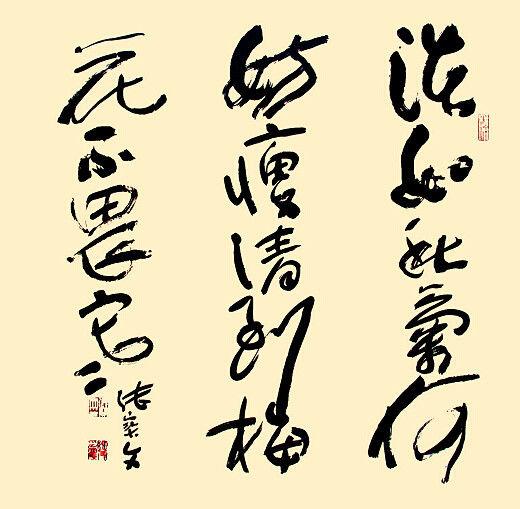 淡如秋菊何
妨瘦清到梅
花不畏寒